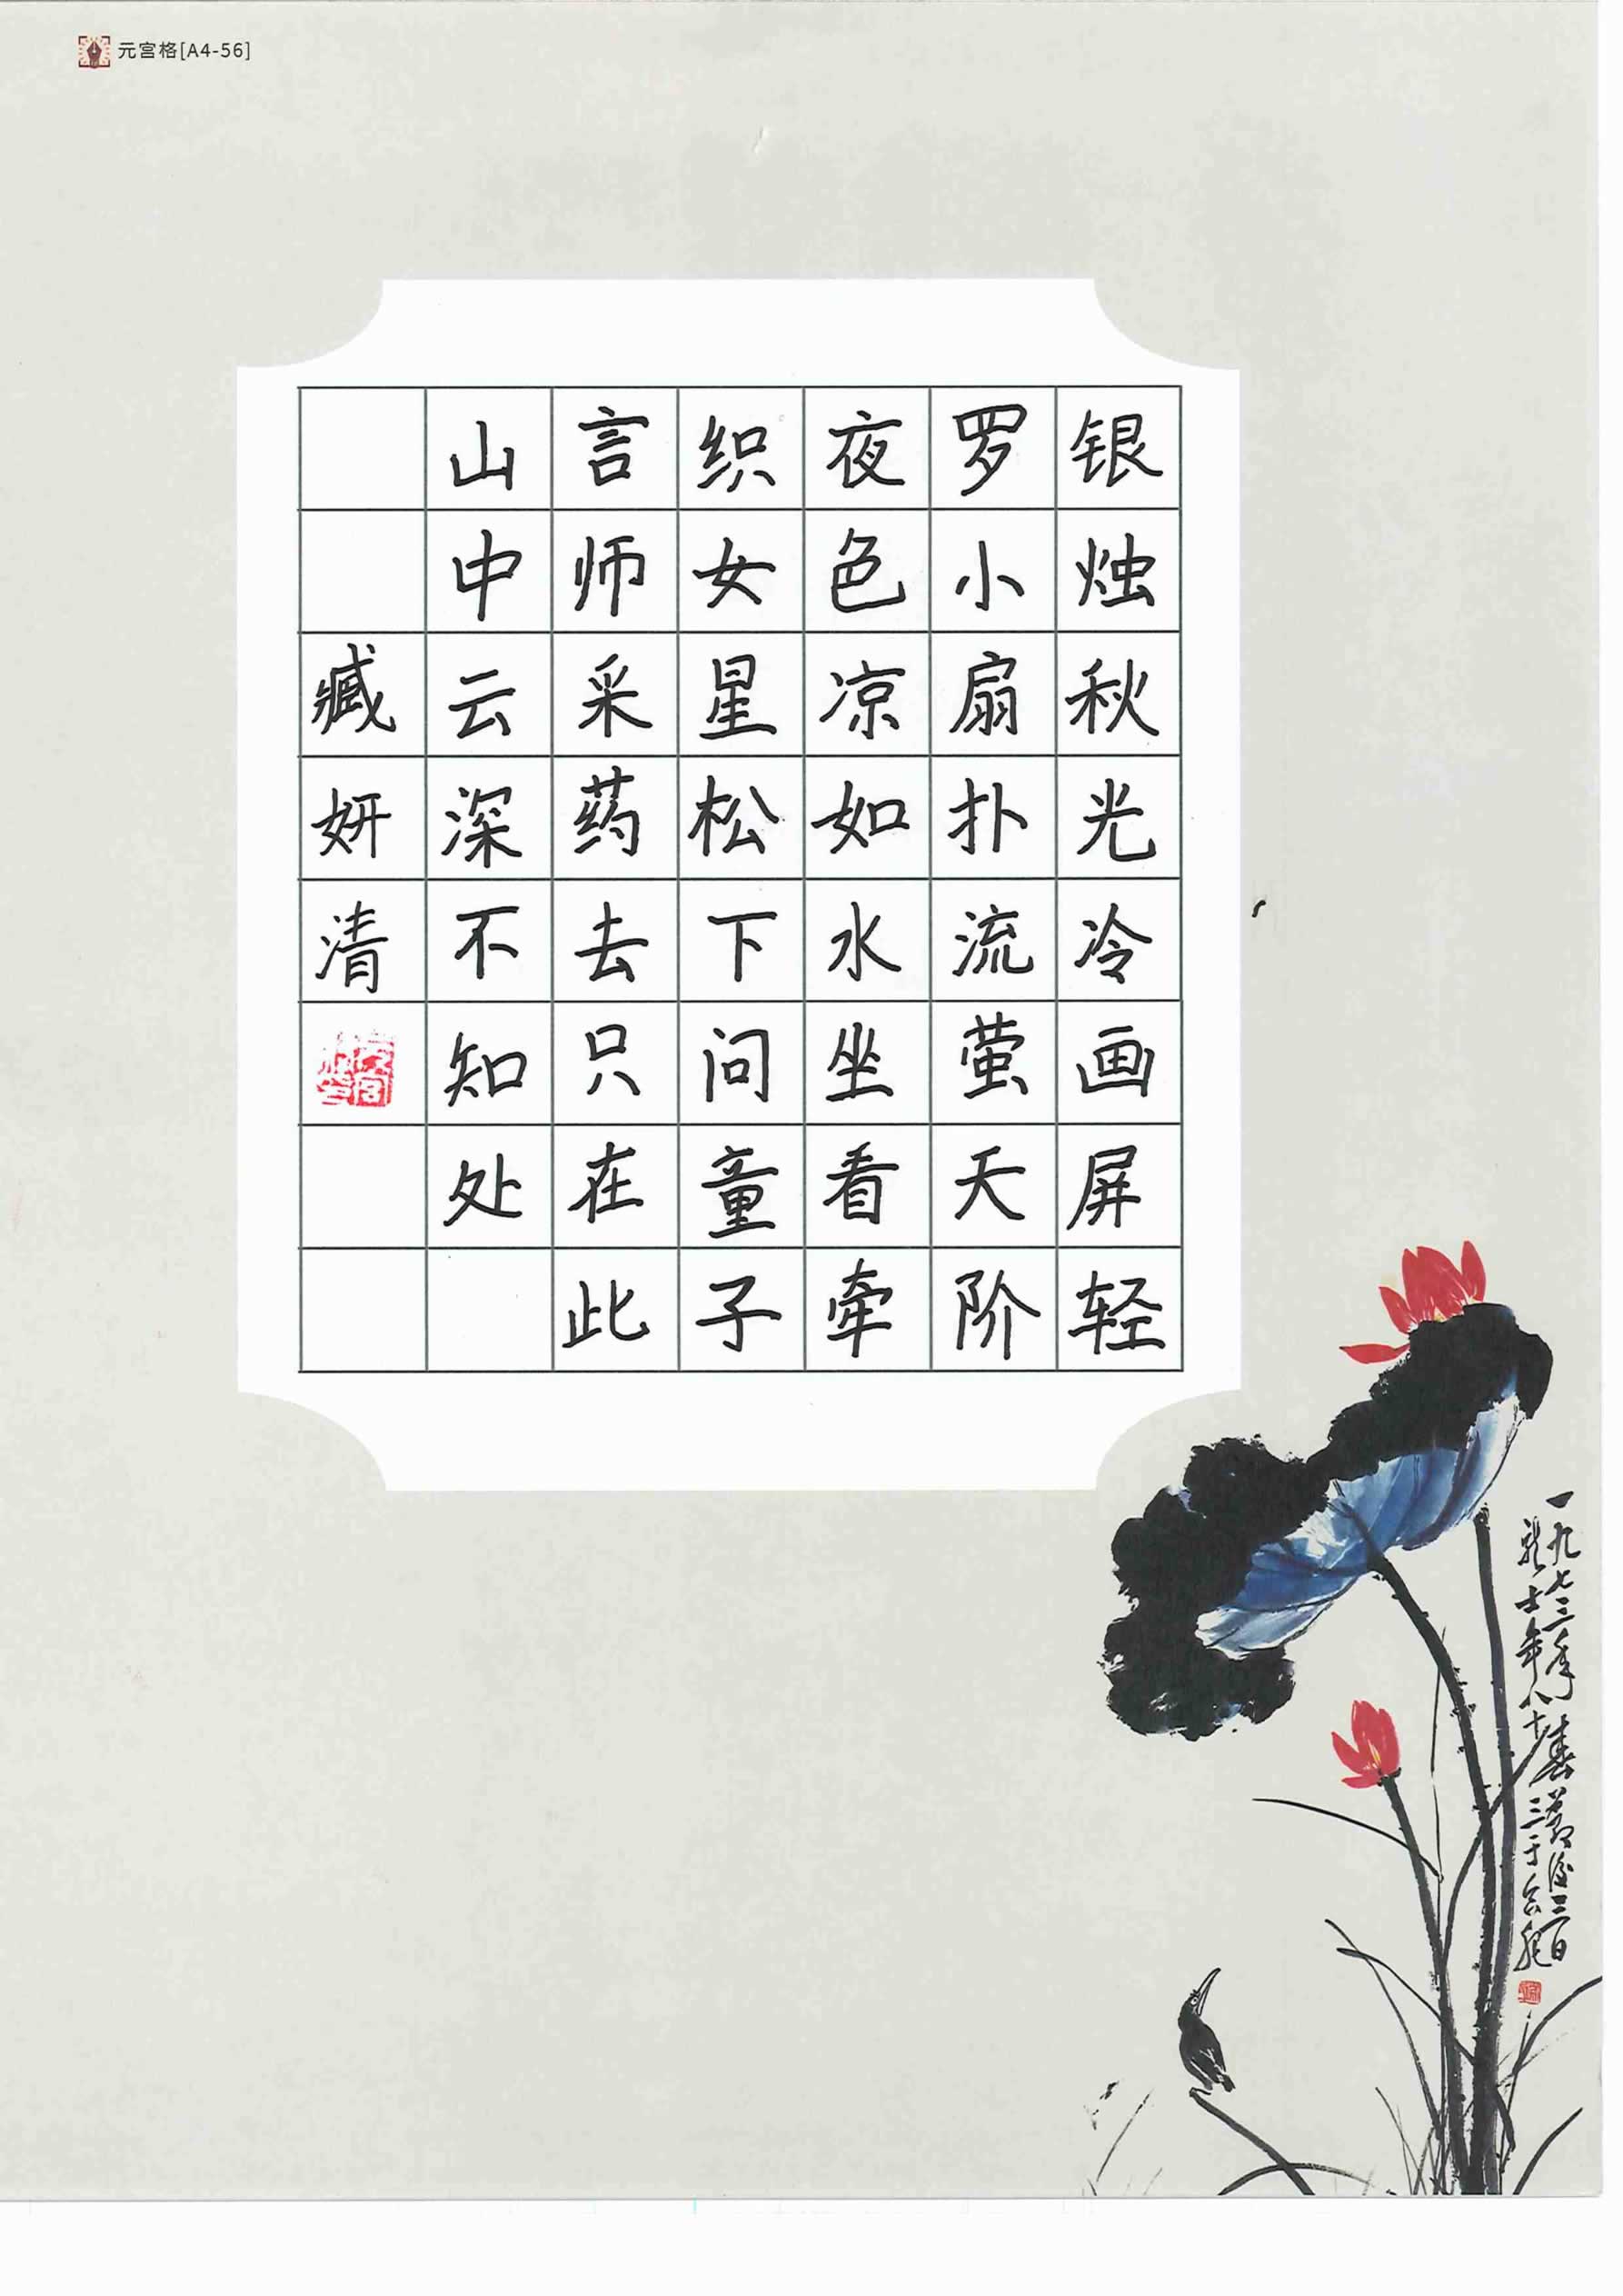 元宫格[A4-56]
银烛秋光冷画屏轻
罗小扇扑流萤天阶
夜色凉如水坐看牵
织女星松下问童子
言师采药去只在此
山中云深不知处
臧妍清
一九七三年